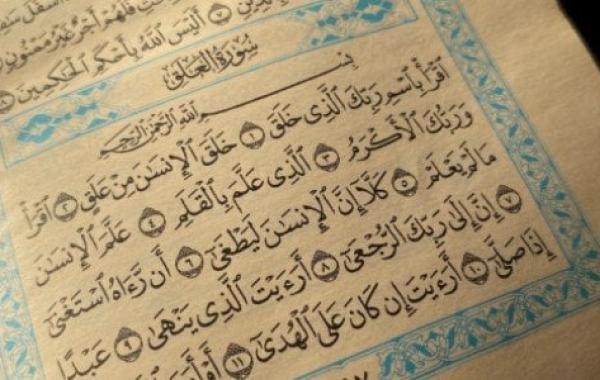 أَسْفَلَ
فَلَهُمْ أَجْرٌ غَيْرُ مَمْنُونٍ
أَلَيْسَ ٱللَّهُ بِأَحْكَمِ ٱلْحَٰكِمِينَ ٨
سُورَةُ ٱلْعَلَقِ
بِسْمِ ٱللَّهِ ٱلرَّحْمَٰنِ ٱلرَّحِيمِ
ٱقْرَأْ بِٱسْمِ رَبِّكَ ٱلَّذِى خَلَقَ ١ خَلَقَ ٱلْإِنسَٰنَ مِنْ عَلَقٍ ٢ ٱقْرَأْ
وَرَبُّكَ ٱلْأَكْرَمُ ٣ ٱلَّذِى عَلَّمَ بِٱلْقَلَمِ ٤ عَلَّمَ ٱلْإِنسَٰنَ
مَا لَمْ يَعْلَمْ ٥ كَلَّآ إِنَّ ٱلْإِنسَٰنَ لَيَطْغَىٰٓ ٦ أَن رَّءَاهُ ٱسْتَغْنَىٰٓ
٧ إِنَّ إِلَىٰ رَبِّكَ ٱلرُّجْعَىٰٓ ٨ أَرَءَيْتَ ٱلَّذِى يَنْهَىٰ ٩ عَبْدًا
إِذَا صَلَّىٰٓ ١٠ أَرَءَيْتَ إِن كَانَ عَلَى ٱلْهُدَىٰٓ ١١